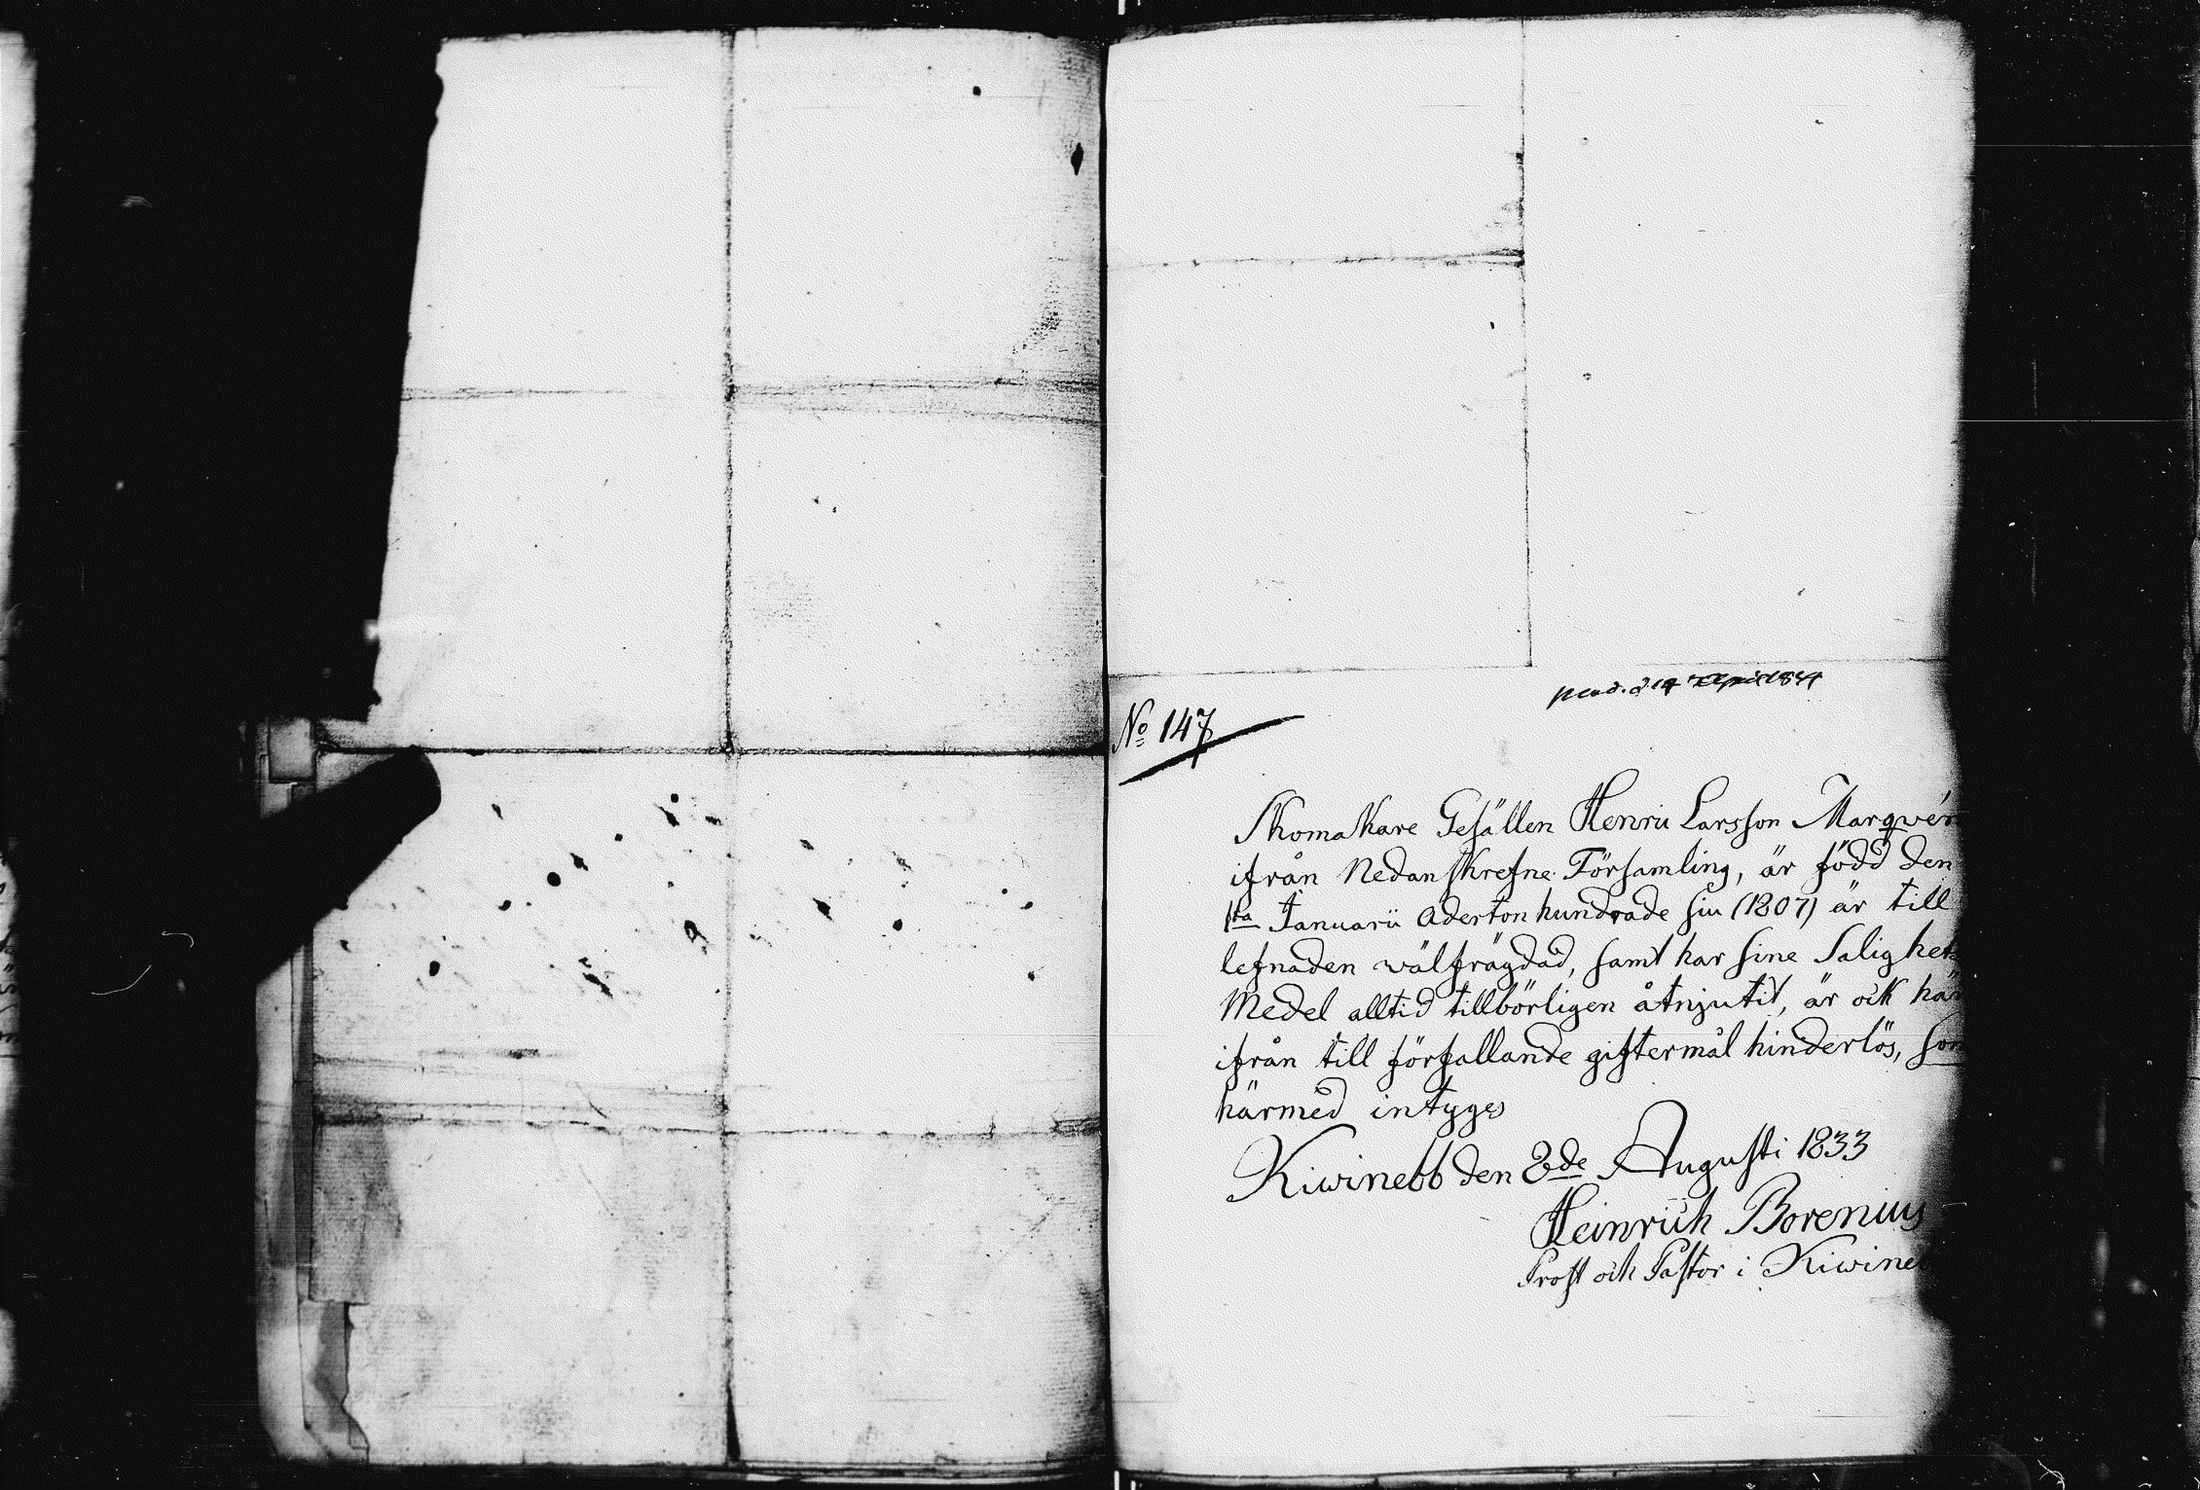 No 147
Skomakare Gesällen Henric Larsson Marqvér
ifrån Nedanskrefne Församling, är född den
1ta Januarii Adertonhundrade siu (1807) är till
lefnaden wälfrägdad, samt har sine Salighets
Medel alltid tillbörligen åtnjutit, är ock här
ifrån till förfallande giftermål hinderlös, som
härmed intyges
Kiwinebb den 2de Augusti 1833
Heinrich Borenius
Prost och Pastor i Kiwineb